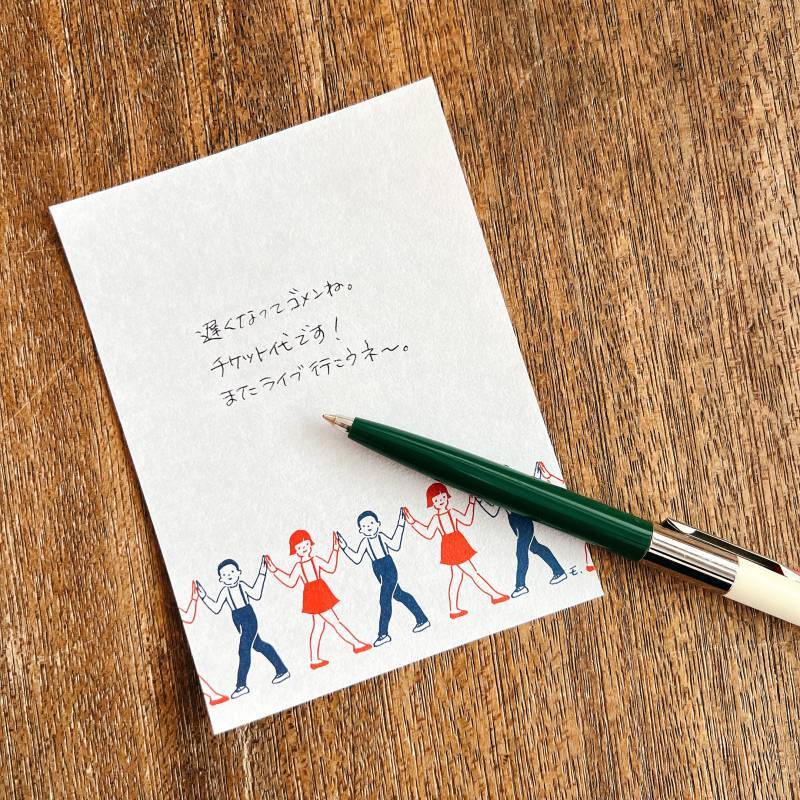 遅くなってゴメンね。
チケット代です！
またライブ行こウネ〜。
モ.